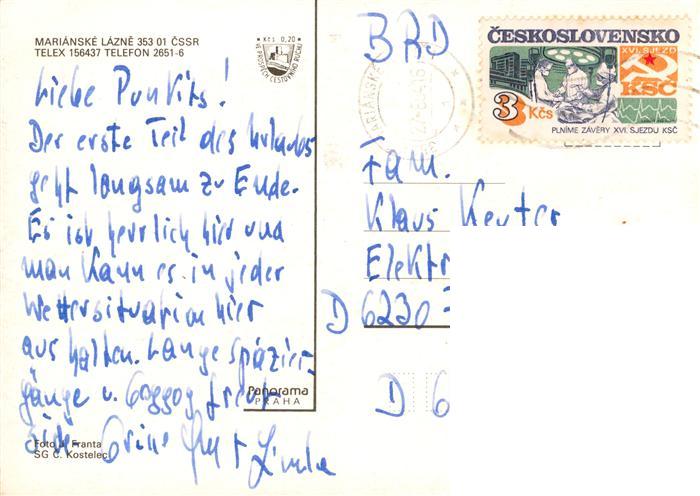 MARIÁNSKÉ LÁZNĚ 353 01 ČSSR
TELEX 156437 TELEFON 2651-6
Kčs 0,20
VE PROSPĚCH CESTOVNÍHO RUCHU
Liebe
Der erste Teil des Urlaubs
geht langsam zu Ende.
Es ist herrlich hier und
man kann es in jeder
Wettersituation hier
aus halten. Lange Spazier-
gänge u.
Panorama
PRAHA
Foto J. Franta
SG C. Kostelec
BRD
ČESKOSLOVENSKO
XVI. SJEZD
KSČ
3 Kčs
PLNÍME ZÁVĚRY XVI. SJEZDU KSČ
MARIÁNSKÉ
Fam.
Klaus Keuter
Elektr
D 6230
D 6